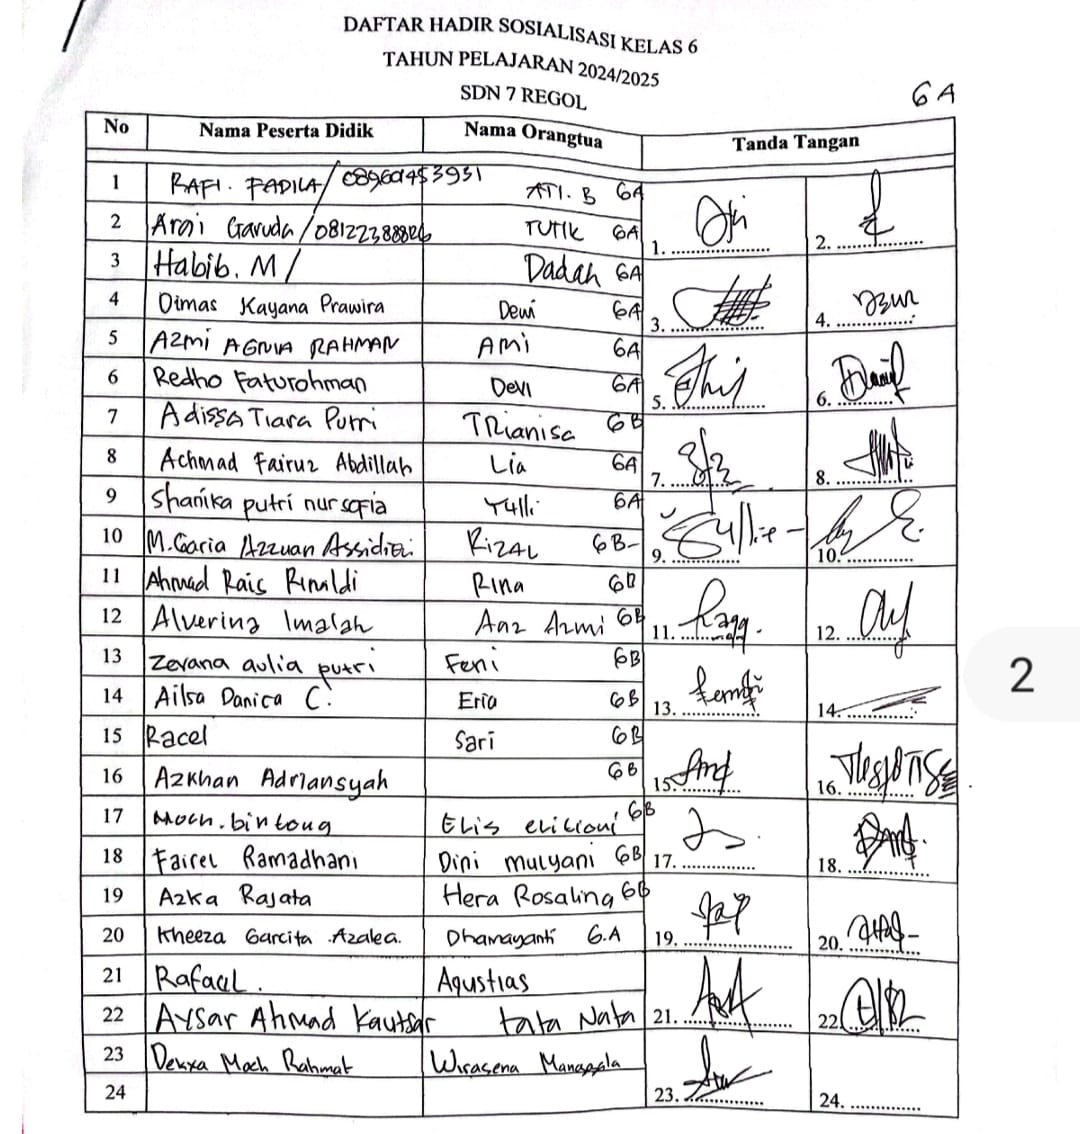 DAFTAR HADIR SOSIALISASI KELAS 6
TAHUN PELAJARAN 2024/2025
SDN 7 REGOL
6A
No Nama Peserta Didik Nama Orangtua Tanda Tangan
1 RAFI. FADILA/ ATI. B 6A
2 Argi Garuda / TUTIK 6A 1. 2.
3 Habib. M / Dadah 6A
4 Dimas Kayana Prawira Dewi 6A 3. 4.
5 AZMI AGNIA RAHMAN AMi 6A
6 Redho Faturohman DeVI 6A 5. 6.
7 Adissa Tiara Putri TRianisa 6B
8 Achmad Fairuz Abdillah Lia 6A 7. 8.
9 Shanika putri nur sofia Yulli 6A
10 M. Azzuan RIZAL 6B- 9. 10.
11 Ahmad Rais Rinaldi Rina 6B
12 Alverina Imalah Azmi 6B 11. 12.
13 Zevana aulia putri Feni 6B
14 Ailsa Danica C. Eria 6B 13. 14.
15 Racel Sari 6B
16 Azkhan Adriansyah 6B 15. 16.
17 Moch. bintoug Elis 6B
18 Fairel Ramadhani Dini mulyani 6B 17. 18.
19 Azka Rajata Hera Rosalina 6B
20 Kheeza Garcita Azalea. Dhamayanti 6.A 19. 20.
21 Rafael. Agustias
22 Aysar Ahmad Kautsar tata Nata 21. 22.
23 Moch Rahmat Wirasena Manggala
24 23. 24.
2